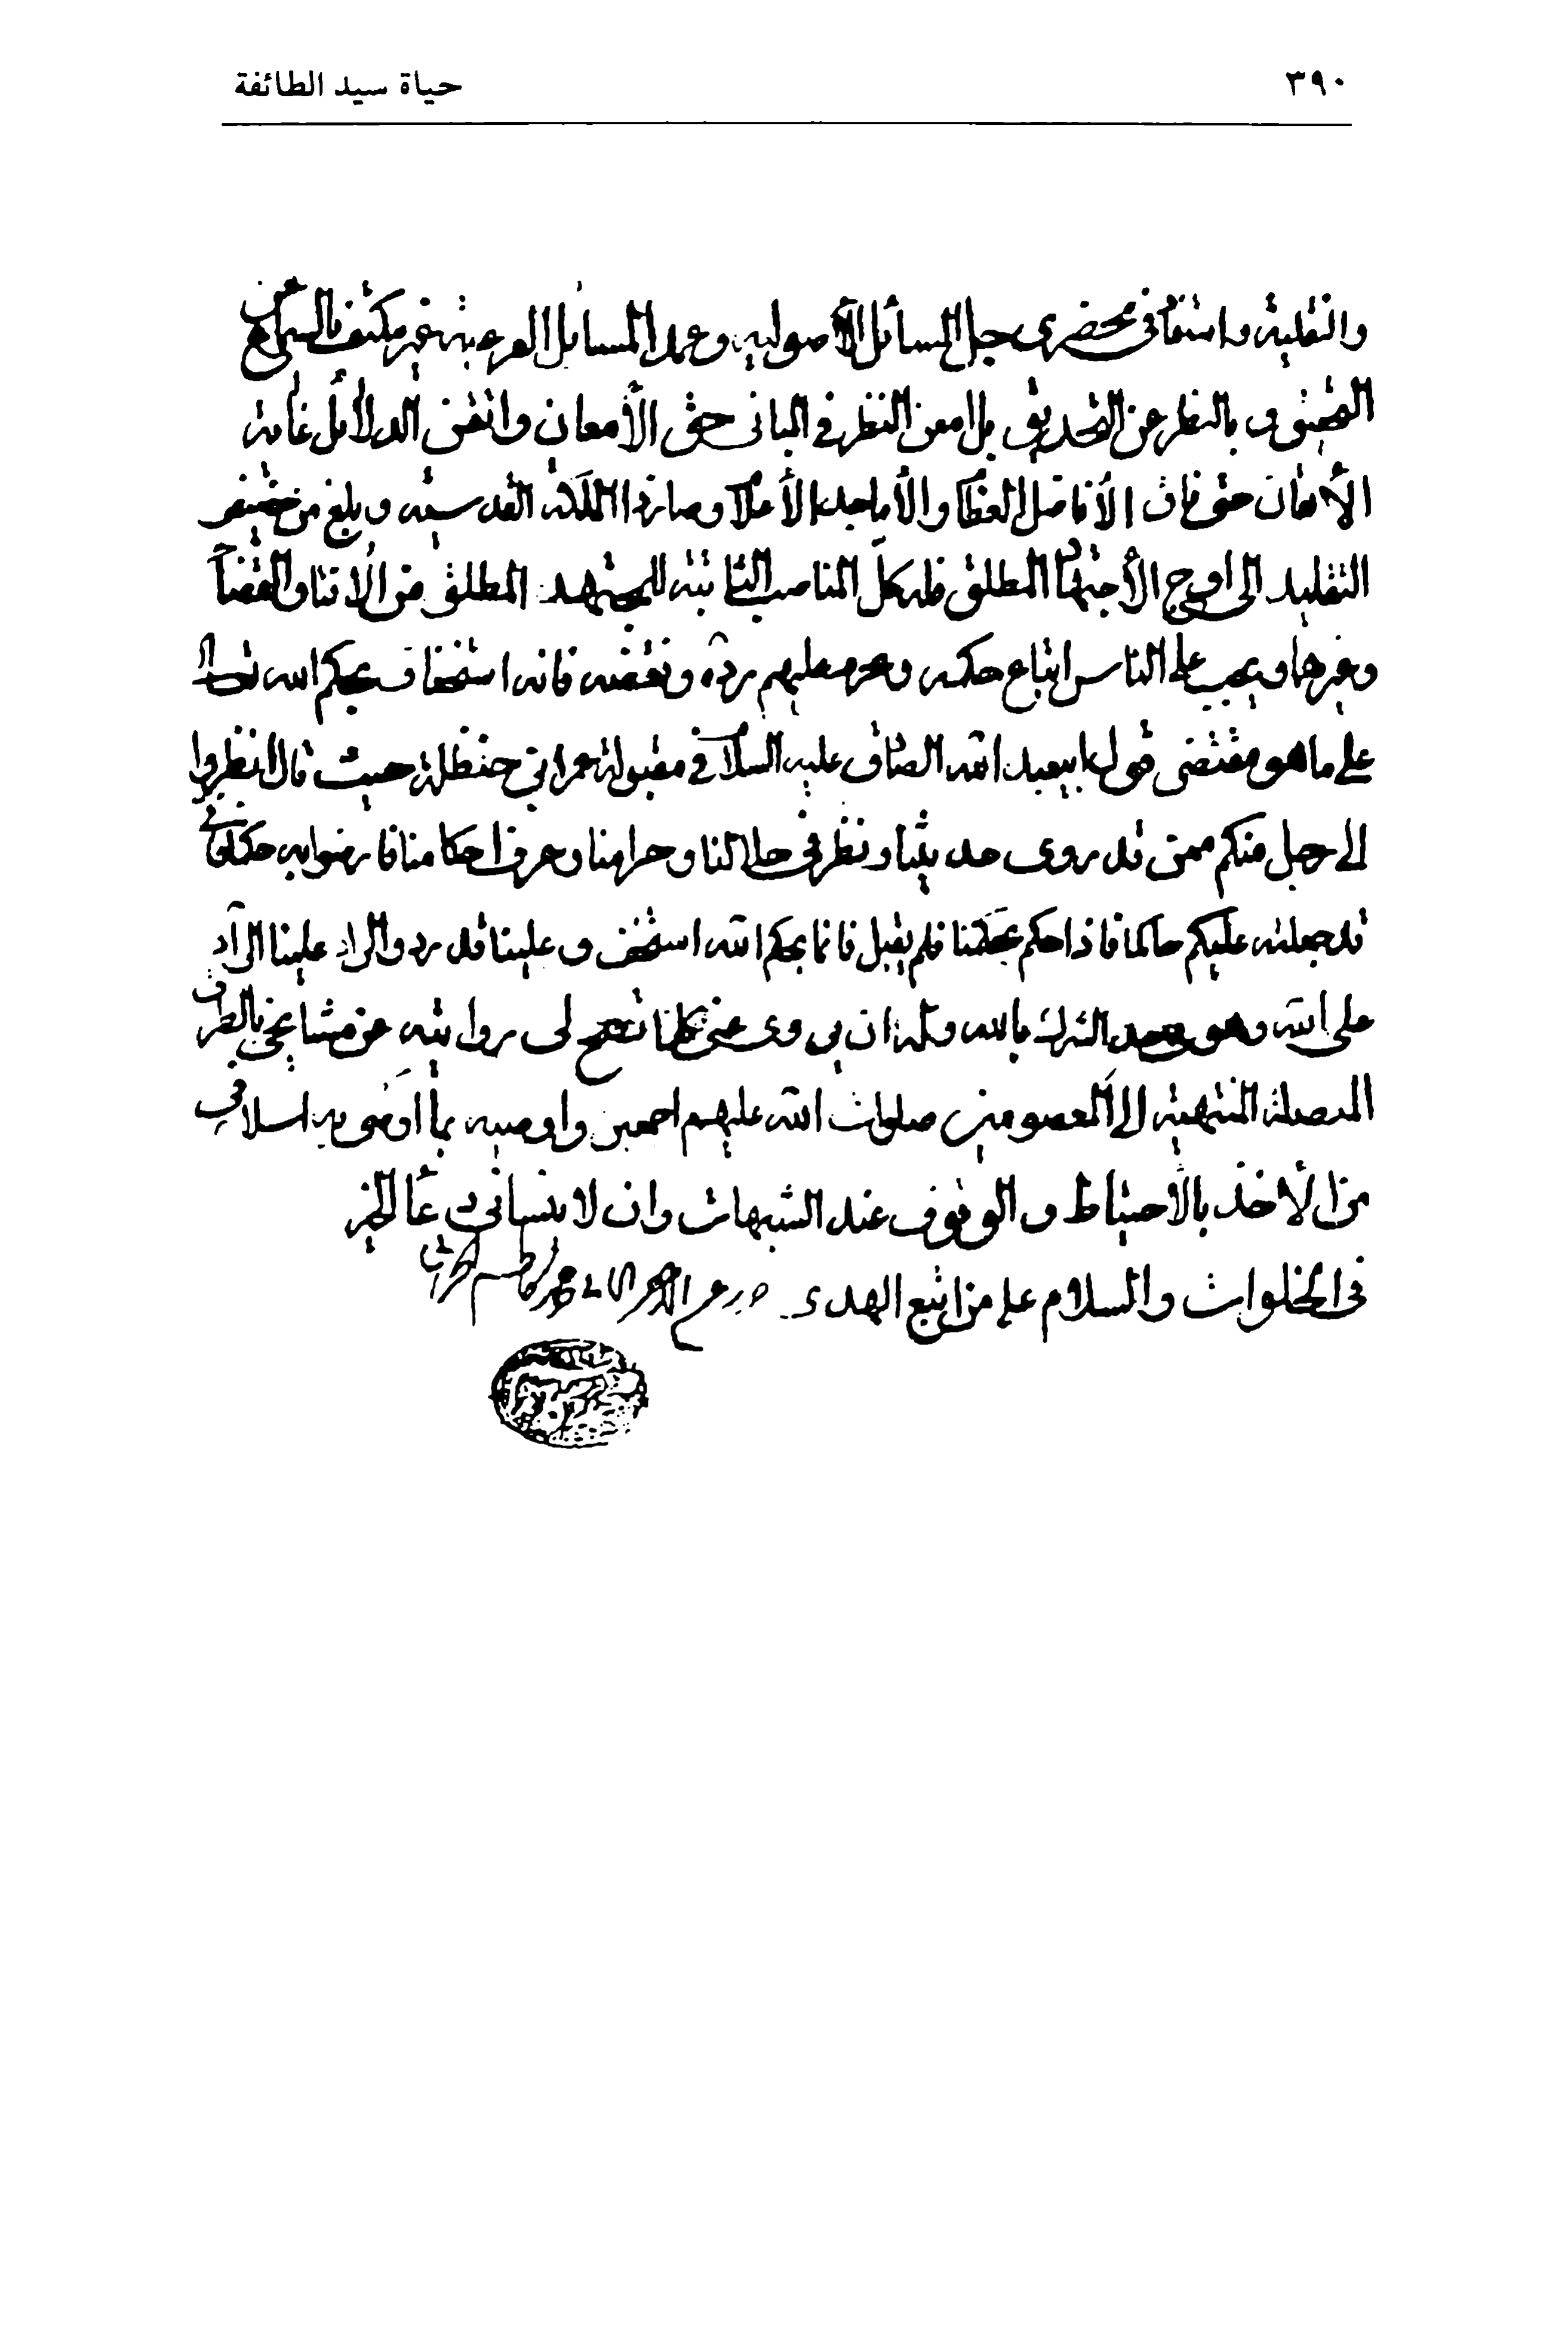 ٣٩٠
حياة سيد الطائفة
والنقلية واستفاد في محضري جل المسائل الأصولية وعمد المسائل الفرعية غير مكتف بالسماع عن
التصور وبالنظر عن التصديق بل امعن النظر في المباني حق الأمعان واتقن الدلائل غاية
الأتقان حتى فاق الأفاضل العظام والأماجد الأعلام وصار ذا الملكة القدسية وبلغ من حضيض
التقليد الى اوج الأجتهاد المطلق فله كل المناصب الثابتة للمجتهد المطلق من الافتاء والقضاء
وغيرها ويجب على الناس اتباع حكمه ويحرم عليهم رده ونقضه فانه استخفاف بحكم الله تعالى
على ما هو مقتضى قول ابيعبد الله الصادق عليه السلام في مقبولة عمر ابن حنظلة حيث قال انظروا
الى رجل منكم ممن قد روى حديثنا ونظر في حلالنا وحرامنا وعرف احكامنا فارضوا به حكما فاني
قد جعلته عليكم حاكما فاذا حكم بحكمنا فلم يقبل فانما بحكم الله استخف وعلينا قد رد والراد علينا الراد
على الله وهو على حد الشرك بالله وله ان يروى عني كلما تصح لى روايته عن مشايخي بالطرق
المتصلة المنتهية الى المعصومين صلوات الله عليهم اجمعين واوصيه بما اوصى به اسلافي
من الأخذ بالأحتياط والوقوف عند الشبهات وان لا ينساني دعاء الخير
في الخلوات والسلام على من اتبع الهدى محمد كاظم